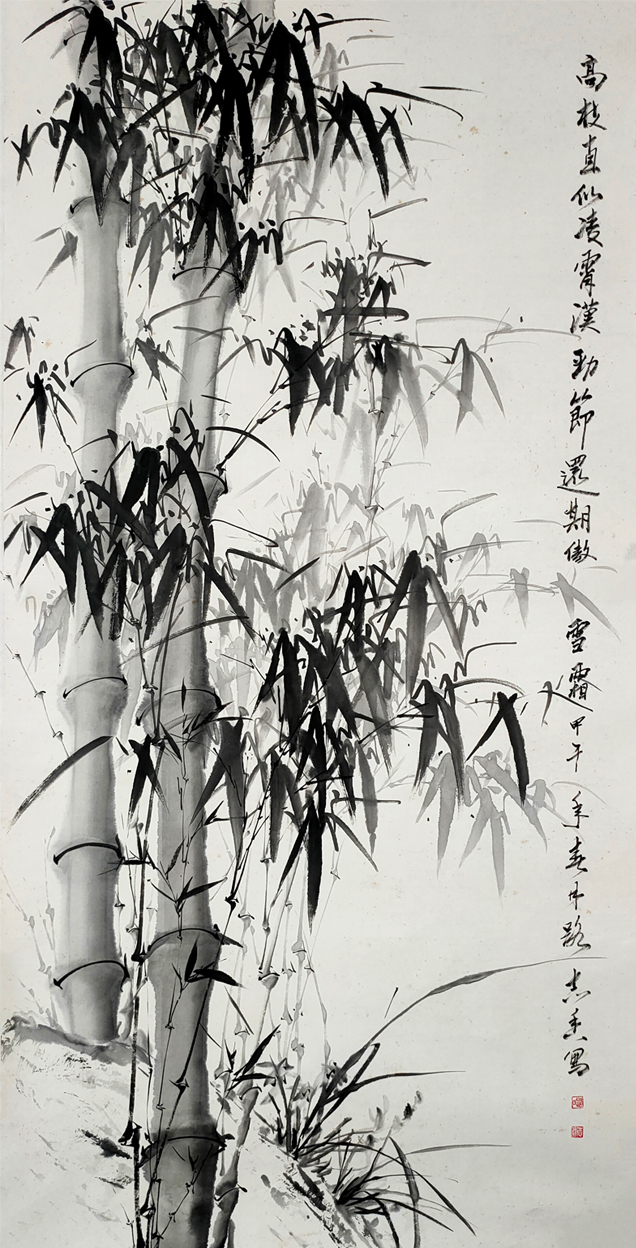 高枝直似凌霄漢勁節還期傲雪霜甲午年春月路志善寫